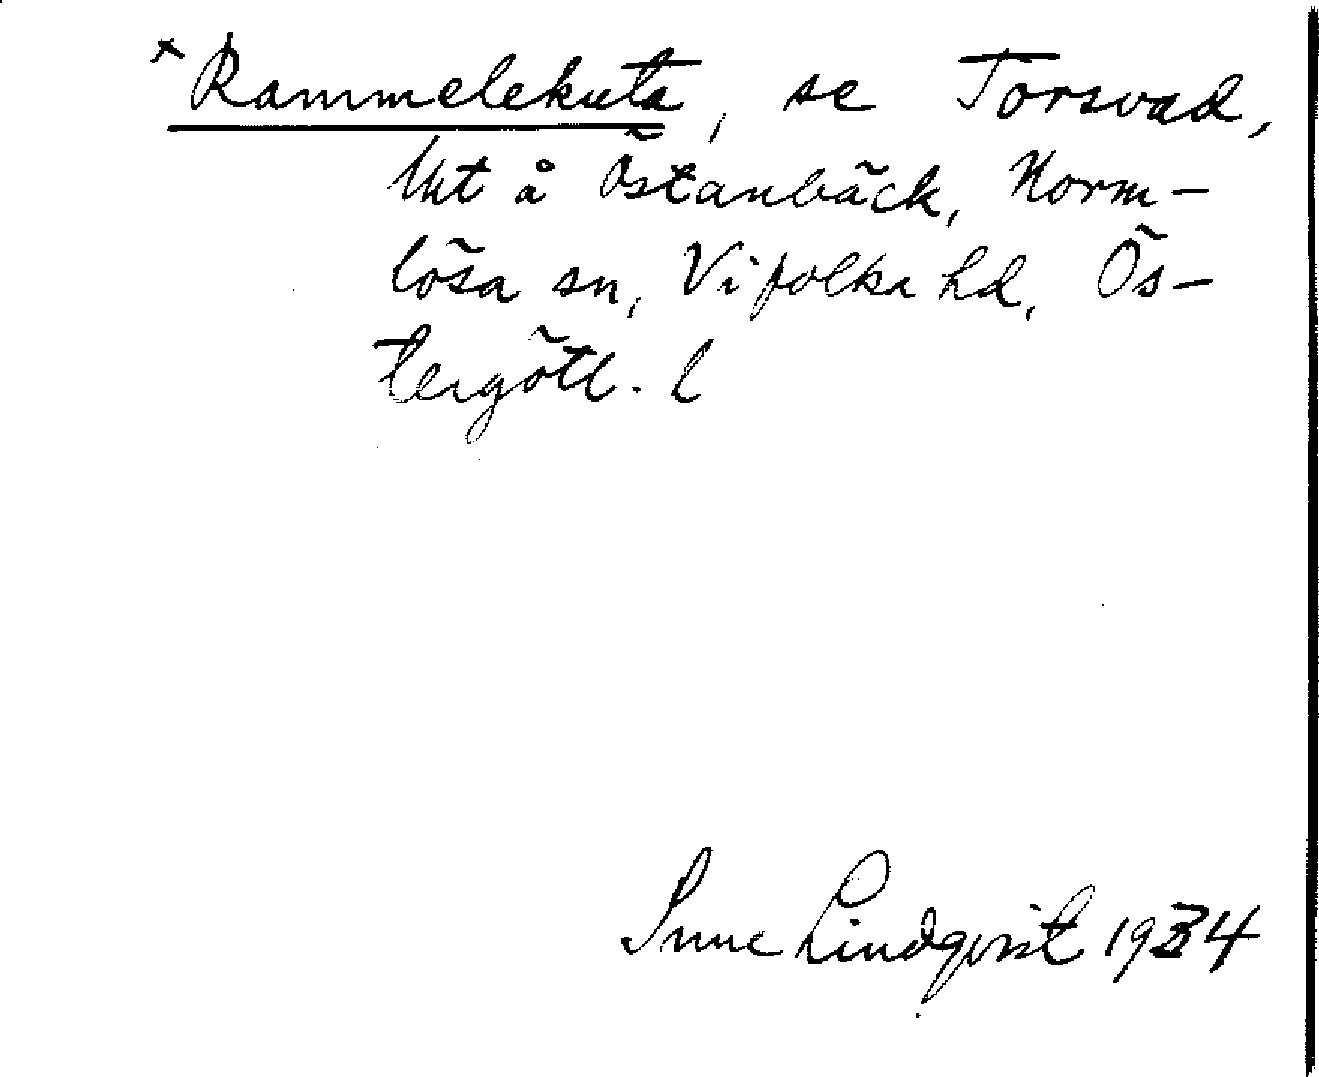 × Rammelekuta, se Torsvad,
lht å Östanbäck, Norm-
lösa sn, Vifolka hd, Ös-
tergötl. l
Sune Lindqvist 1934